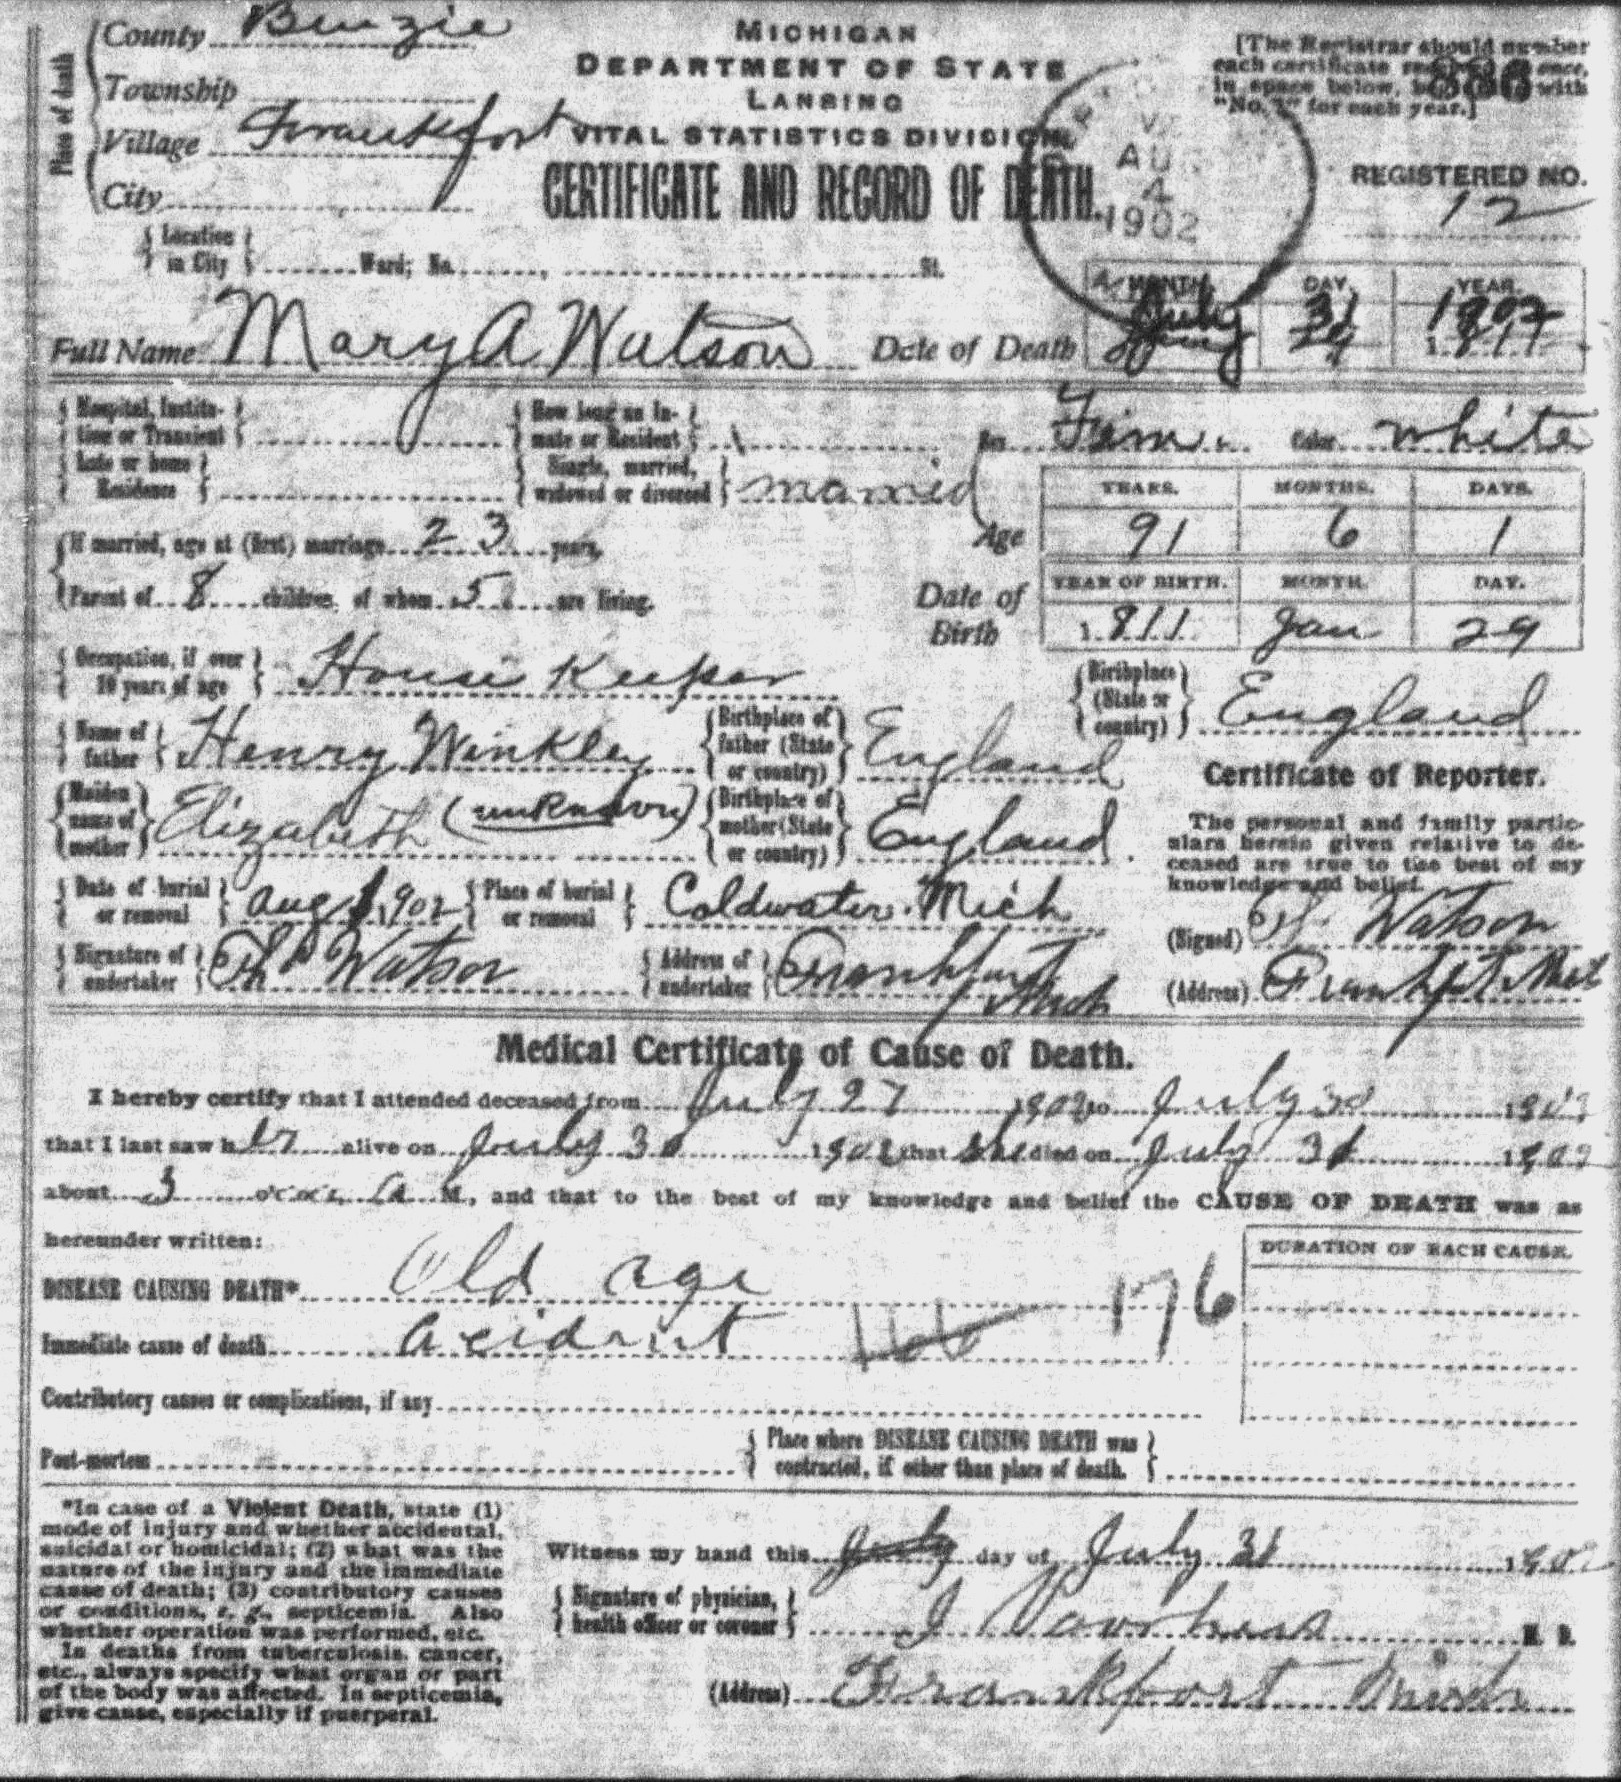 Place of death
County Benzie
Township
Village Frankfort
City
MICHIGAN
DEPARTMENT OF STATE
LANSING
VITAL STATISTICS DIVISION
CERTIFICATE AND RECORD OF DEATH.
AUG
4
1902
[The Registrar should number
each certificate once,
in space below, with
"No. 1" for each year.]
REGISTERED NO.
12
Location in City Ward; No. , St.
Full Name Mary A Watson Date of Death
MONTH. DAY. YEAR.
July 31 1902
29 1811
Hospital, Institution or Transient
How long an Inmate or Resident
Sex Fem. Color white
Late or home Residence
Single, married, widowed or divorced married
Age
YEARS. MONTHS. DAYS.
91 6 1
If married, age at (first) marriage 23 years.
Parent of 8 children, of whom 5 are living.
Date of Birth
YEAR OF BIRTH. MONTH. DAY.
1811 Jan 29
Occupation, if over 10 years of age House Keeper
Birthplace (State or country) England
Name of father Henry Winkley
Birthplace of father (State or country) England
Maiden name of mother Elizabeth (unknown)
Birthplace of mother (State or country) England
Certificate of Reporter.
The personal and family partic-
ulars herein given relative to de-
ceased are true to the best of my
knowledge and belief.
(Signed) Watson
(Address) Frankfort Mich
Date of burial or removal Aug 1 1902
Place of burial or removal Coldwater Mich
Signature of undertaker Watson
Address of undertaker Frankfort Mich
Medical Certificate of Cause of Death.
I hereby certify that I attended deceased from July 27 1902 to July 30 1902
that I last saw her alive on July 30 1902 that she died on July 31 1902
about 3 o'clock A M., and that to the best of my knowledge and belief the CAUSE OF DEATH was as
hereunder written:
DURATION OF EACH CAUSE.
DISEASE CAUSING DEATH* Old age
176
Immediate cause of death acident
Contributory causes or complications, if any
Post-mortem
Place where DISEASE CAUSING DEATH was contracted, if other than place of death.
*In case of a Violent Death, state (1)
mode of injury and whether accidental,
suicidal or homicidal; (2) what was the
nature of the injury and the immediate
cause of death; (3) contributory causes
or conditions, e. g., septicemia. Also
whether operation was performed, etc.
In deaths from tuberculosis, cancer,
etc., always specify what organ or part
of the body was affected. In septicemia,
give cause, especially if puerperal.
Witness my hand this July day of July 31 1902
Signature of physician, health officer or coroner J Voorheis M. D.
(Address) Frankfort Mich